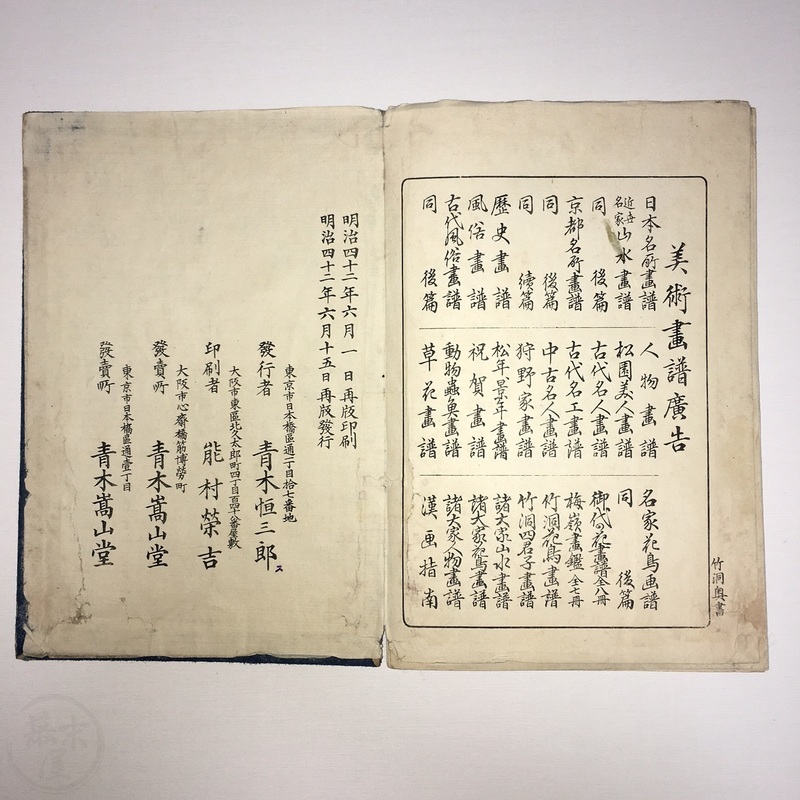 美術畫譜廣告
日本名所畫譜
近世名家山水畫譜
同 後篇
京都名所畫譜
同 後篇
同 續篇
歷史畫譜
風俗畫譜
古代風俗畫譜
同 後篇
人物畫譜
松園美人畫譜
古代名人畫譜
古代名工畫譜
中古名人畫譜
狩野家畫譜
松年景年畫譜
祝賀畫譜
動物蟲魚畫譜
草花畫譜
名家花鳥画譜
同 後篇
御代の花畫譜全八冊
梅嶺畫鑑全七冊
竹洞花鳥畫譜
竹洞四君子畫譜
諸大家山水畫譜
諸大家花鳥畫譜
諸大家人物畫譜
漢画指南
竹洞奥書
明治四十二年六月一日再版印刷
明治四十二年六月十五日再版發行
東京市日本橋區通一丁目拾七番地
發行者 青木恒三郎
ス
大阪市東區北久太郎町四丁目百四十八番屋敷
印刷者 能村榮吉
大阪市心齋橋筋博勞町
發賣所 青木嵩山堂
東京市日本橋區通壹丁目
發賣所 青木嵩山堂